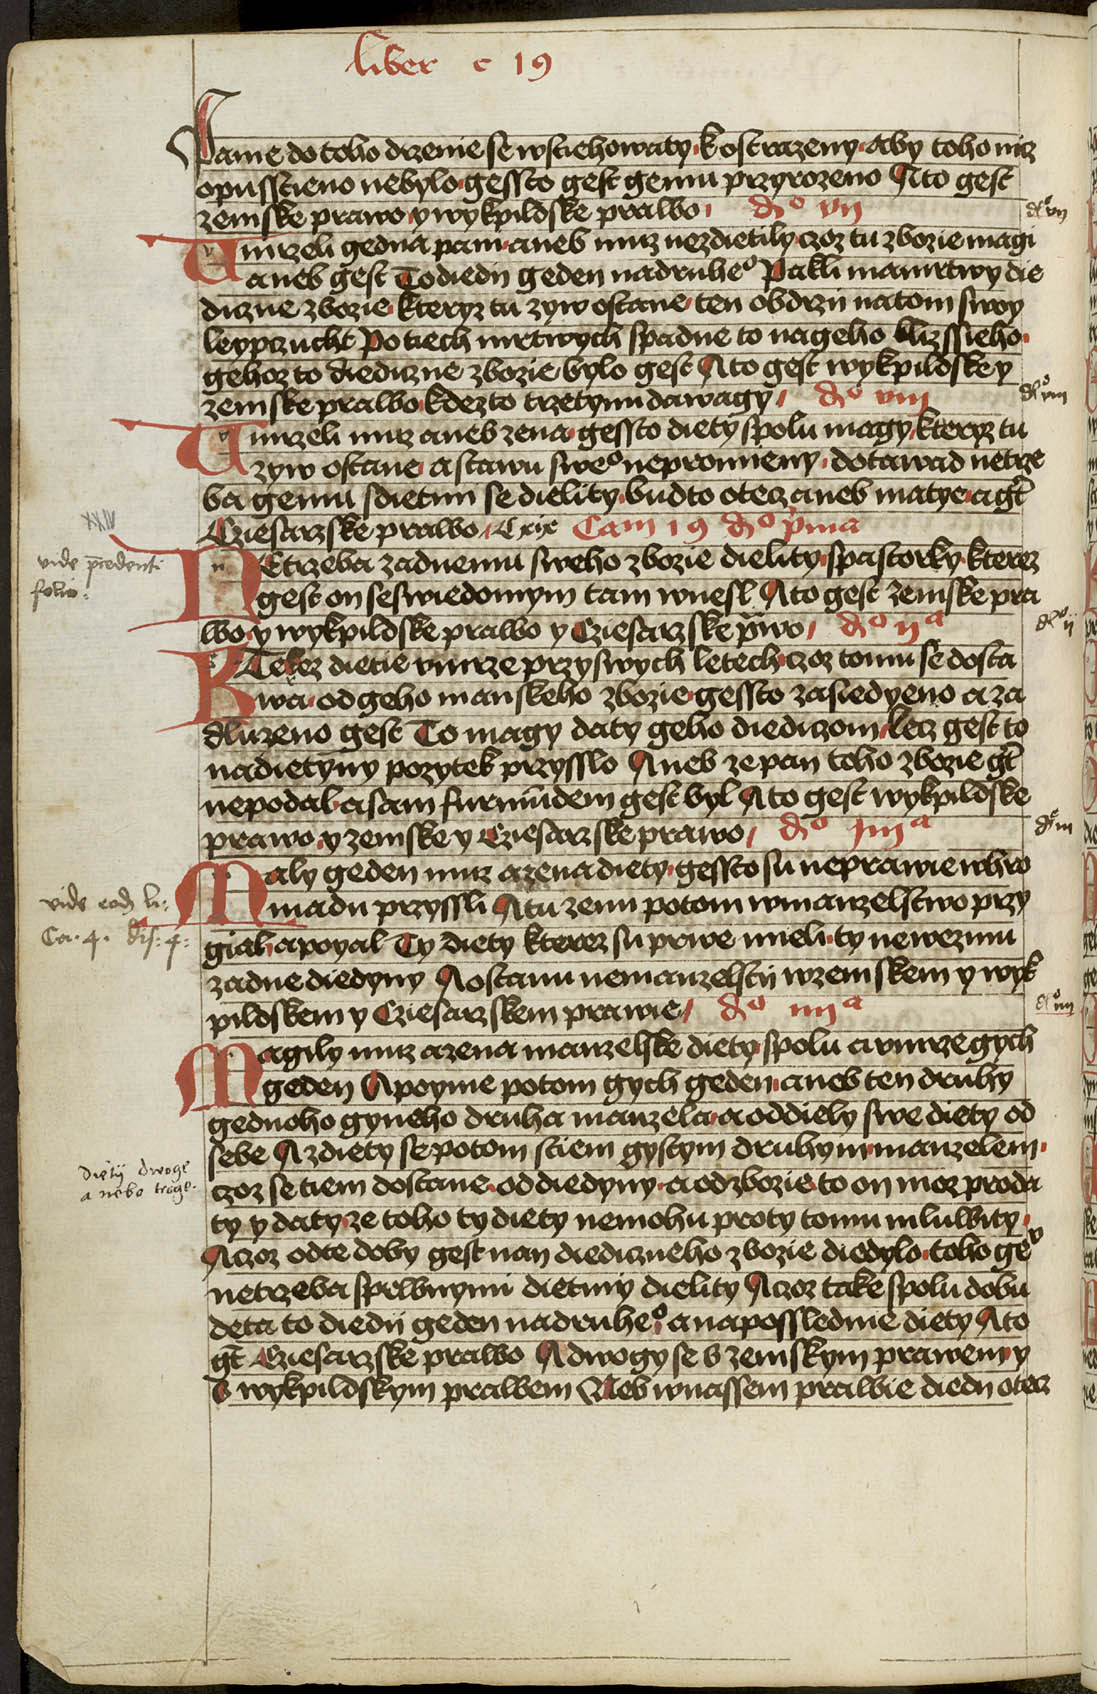 liber c 19
Jame do toho drzenie se wstiehowaty kostrazeny aby toho nicz
opusstieno nebylo gessto gest gemu przyrozeno Ato gest
zemske prawo y wykpildske prawo dº vii
dº vii
Umrzeli gedna pani aneb muz nezdietily czoz tu zbozie magi
aneb gest To diedij geden na druheº Pakli ma mrtwy die
diczne zbozie kteryz tu zyw ostane ten obdrzij na tom swoy
leypczucht Po tiech mrtwych spadne to na geho blizssieho
gehoz to diediczne zbozie bylo gest Ato gest wykpildske y
zemske prawo kdezto trzetynu dawagy dº viii
dº viii
Umrzeli muz aneb zena gessto diety spolu magy kteryz tu
zyw ostane a stawu sweº nepromieny dotawad netrze
ba gemu s dietmi se dielity bud to otecz aneb matye a gest
Cziesarzske prawo Cam 19 dº prima
xxiv
NEtrzeba zadnemu sweho zbozie dielity s pastorky kterez
vide precedenti
folio
gest on se swiedomym tam wnesl Ato gest zemske pra
wo y wykpildske prawo y Cziesarzske prawo dº ijª
dº ij
KTerez dietie umrze przy swych letech czoz tomu se dosta
wa od geho manskeho zbozie gessto zasiedyeno a za
dluzeno gest To magy daty geho diediczom lecz gest to
na dietyny pozytek przysslo Aneb ze pan toho zbozie gt
nepodal a sam furmundem gest byl Ato gest wykpildske
prawo y zemske y Cziesarzske prawo dº iiiª
dº iii
Maly geden muz a zena diety gessto su neprawie w hro
madu przyssli A tu zenu potom w manzelstwo przy
vide eod li:
Ca. 4. dis: 4:
gial a poyal Ty diety kterez su prwe mieli ty newezmu
zadne diedyny A ostanu nemanzelsti w zemskem y wyk
pildskem y Cziesarzskem prawie dº iiiiª
dº iiii
Magily muz a zena manzelske diety spolu a umrze gych
geden A poyme potom gych geden aneb ten druhy
gednoho gyneho druha manzela a oddiely swe diety od
sebe Az diety se potom s tiem gystym druhym manzelem
Dietij dwoge
a nebo troge.
czoz se tiem dostane od diedyny a od zbozie to on moz proda
ty y daty ze toho ty diety nemohu proty tomu mluwity
A czoz od te doby gest nan diediczneho zbozie diedylo toho ge
netrzeba s prwnymi dietmy dielity A czoz take spolu dobu
deta to diedij geden na druheº a naposslednie diety Ato
gt Cziesarzske prawo A dwogy se s zemskym prawem y
s wykpildskym prawem Neb w nassem prawie diedij otecz